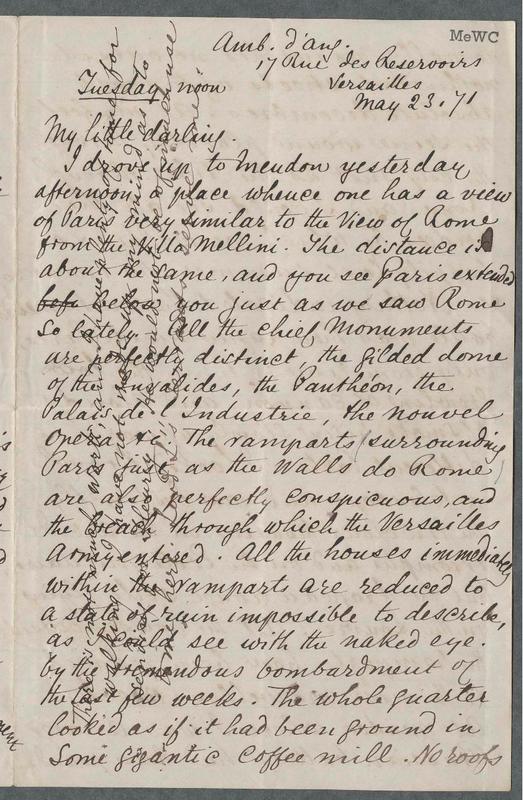 MeWC
Amb. d'ang.
17 Rue des Reservoirs
Versailles
Tuesday, noon
May 23. 71
My little darling.
I drove up to Meudon yesterday
afternoon, a place whence one has a view
of Paris very similar to the View of Rome
from the Villa Mellini. The distance is
about the same, and you see Paris extended
befu below you just as we saw Rome
so lately. All the chief Monuments
are perfectly distinct, the gilded dome
of the Invalides, the Panthéon, the
Palais de l'Industrie, the nouvel
Opera &c. The ramparts (surrounding
Paris just as the Walls do Rome)
are also perfectly conspicuous, and
the breach through which the Versailles
Army entered. All the houses immediately
within the ramparts are reduced to
a state of ruin impossible to describe,
as I could see with the naked eye.
by the tremendous bombardment of
the last few weeks. The whole quarter
looked as if it had been ground in
some gigantic coffee mill. No roofs
There is not much
walking
have not made up my mind as to